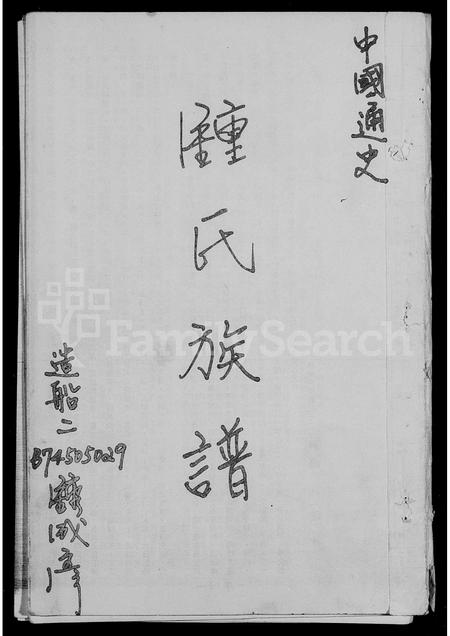 中國通史
鍾氏族譜
造船二
B74505029
FamilySearch